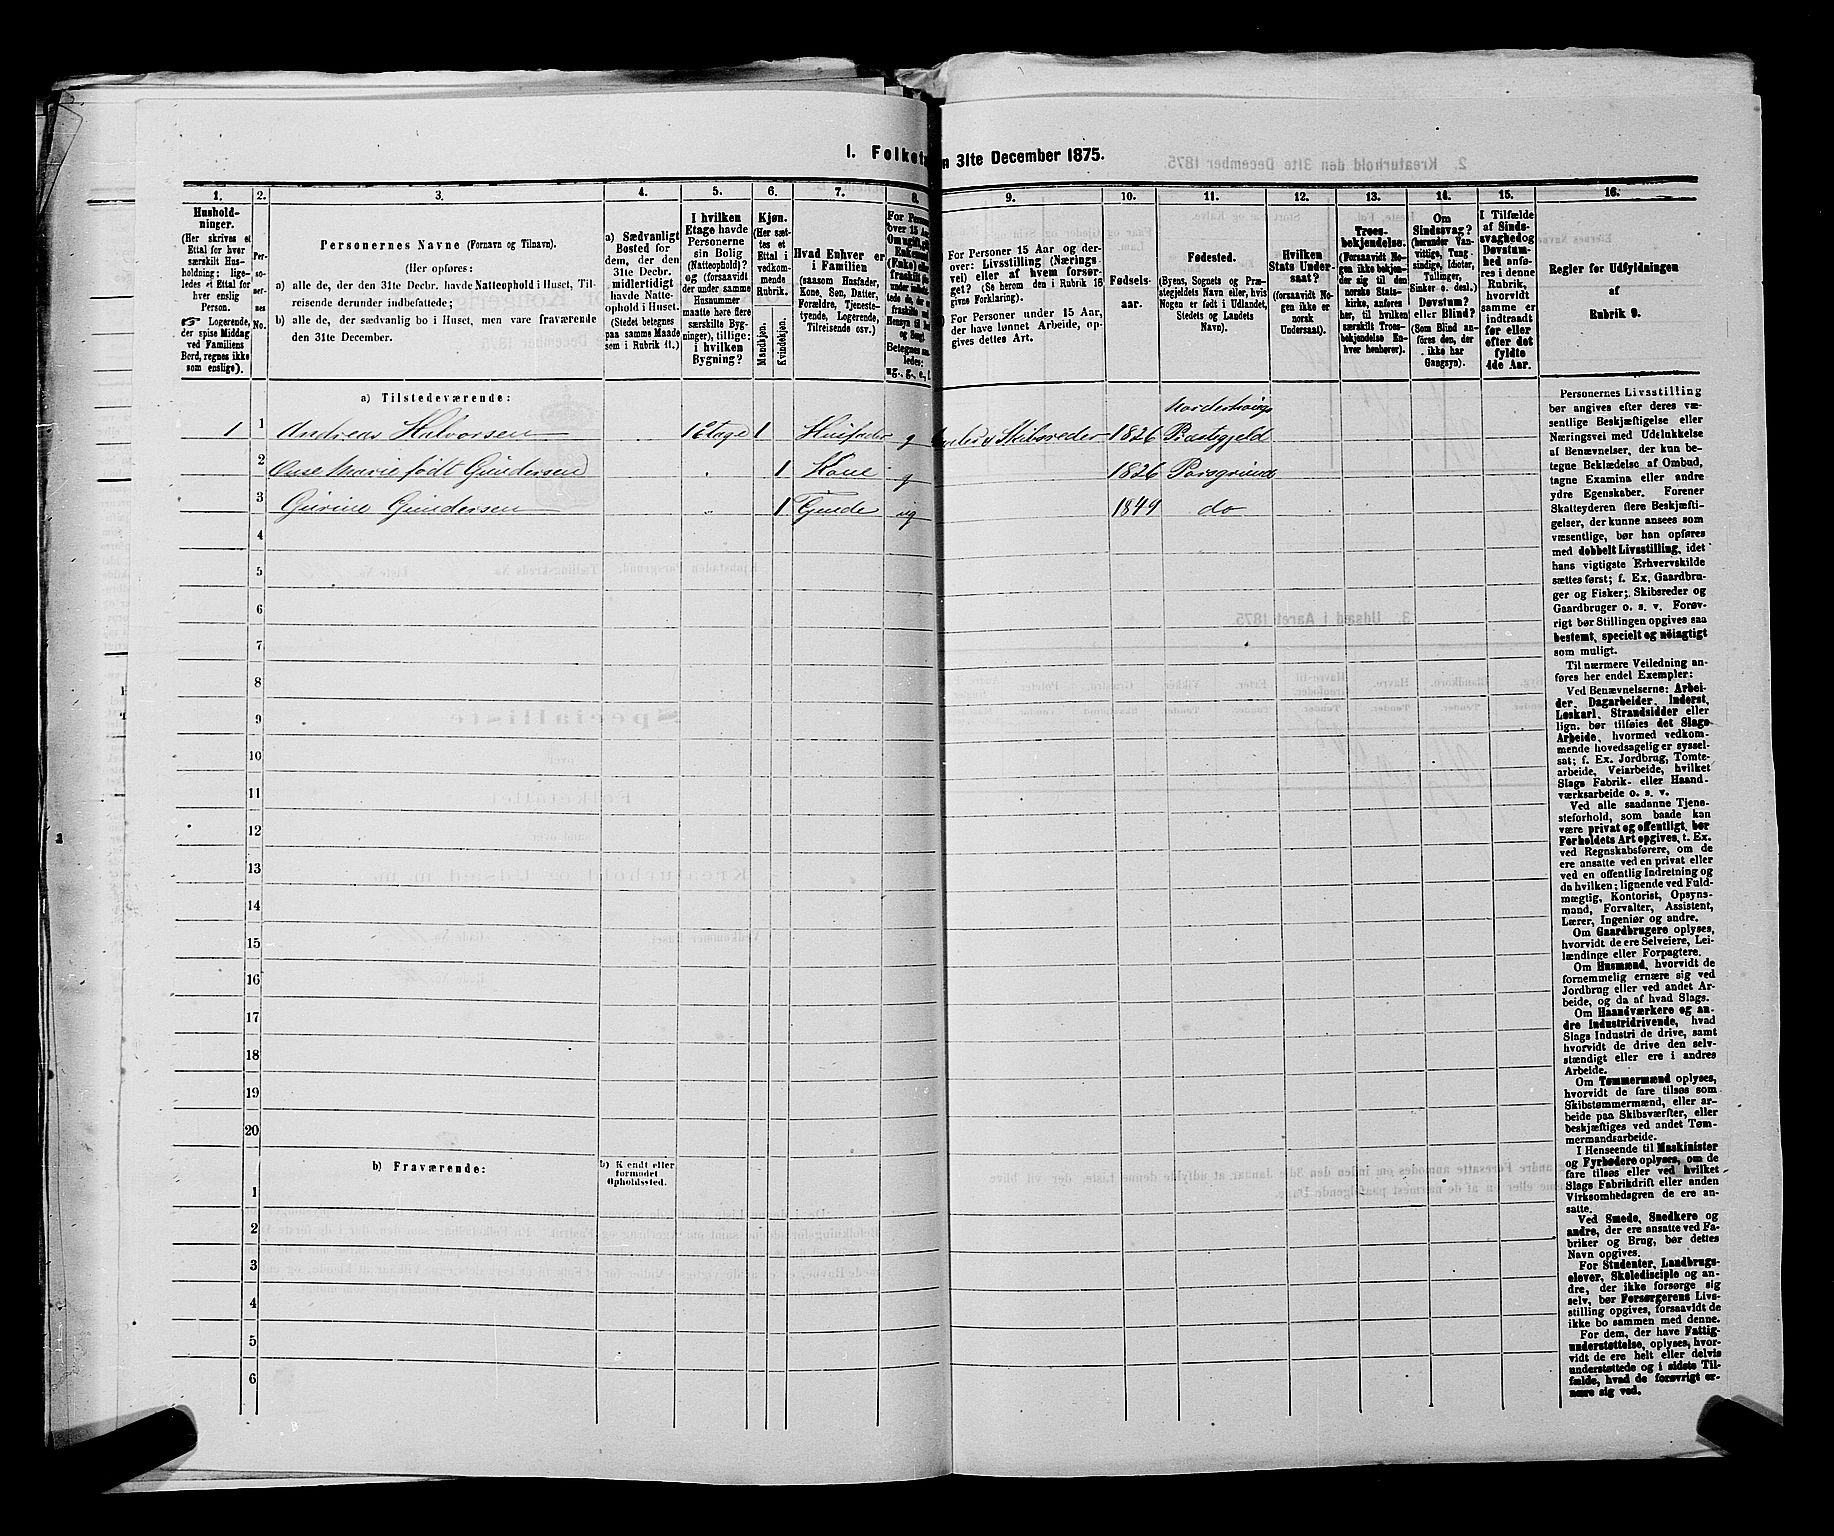 1. Folket
n 31te December 1875.
1.
2.
3.
4.
5.
6.
7.
8.
9.
10.
11.
12.
13.
14.
15.
16.
Hushold-
ninger.
(Her skrives et
Ettal for hver
særskilt Hus-
holdning; lige-
ledes et Ettal for
hver enslig
Person.
Logerende,
der spise Middag
ved Familiens
Bord, regnes ikke
som enslige).
Per-
so-
ner-
nes
No.
Personernes Navne (Fornavn og Tilnavn).
(Her opføres:
a) alle de, der den 31te Decbr. havde Natteophold i Huset, Til-
reisende derunder indbefattede;
b) alle de, der sædvanlig bo i Huset, men vare fraværende
den 31te December.
a) Sædvanligt
Bosted for
dem, der den
31te Decbr.
midlertidigt
havde Natte-
ophold i Huset.
(Stedet betegnes
paa samme Maade
som i Rubrik 11.)
I hvilken
Etage havde
Personerne
sin Bolig
(Natteophold)?
(forsaavidt
der under samme
Husnummer
maatte høre flere
særskilte Byg-
ninger), tillige:
i hvilken
Bygning?
Kjøn.
(Her sæt-
tes et
Ettal i
vedkom-
mende
Rubrik.
Mandkjøn.
Kvindekjøn.
Hvad Enhver er
i Familien
(saasom Husfader,
Kone, Søn, Datter,
Forældre, Tjeneste-
tyende, Logerende,
Tilreisende osv.)
For Personer 15 Aar og der-
over: Livsstilling (Nærings-
vei) eller af hvem forsør-
get? (Se herom den i Rubrik 16
givne Forklaring).
For Personer under 15 Aar,
der have lønnet Arbeide, op-
gives dettes Art.
Fødsels-
aar.
Fødested.
(Byens, Sognets og Præ-
stegjeldets Navn eller, hvis
Nogen er født i Udlandet,
Stedets og Landets
Navn).
Hvilken
Stats Under-
saat?
(forsaavidt No-
gen ikke er
norsk
Undersaat).
Troes-
bekjendelse.
(Forsaavidt No-
gen ikke bekjen-
der sig til den
norske Stats-
kirke, anføres
her, til hvilken
særskilt Troes-
bekjendelse En-
hver henhører).
Om
Sindssvag?
(herunder Van-
vittige, Tung-
sindige, Idioter,
Tullinger,
Sinker o. desl.)
Døvstum?
eller Blind?
(Som Blind an-
føres den, der
ikke har
Gangsyn).
I Tilfælde
af Sinds-
svaghed og
Døvstum-
hed anfø-
res i denne
Rubrik,
hvorvidt
samme er
indtraadt
før eller
efter det
fyldte
4de Aar.
Regler for Udfyldningen
af
Rubrik 9.
a) Tilstedeværende:
Norderhougs
1 1 Andreas Halvorsen 1 Etage 1 Husfader g Skibsreder 1826 Præstegjeld
2 Anse Marie født Gundersen 1 Kone g 1826 Porsgrund
3 Gurine Gundersen 1 Tjende ug 1849 do
4
5
6
7
8
9
10
11
12
13
14
15
16
17
18
19
20
b) Fraværende:
b) Kjendt eller
formodet
Opholdssted.
1
2
3
4
5
6
Personernes Livsstilling
bør angives efter deres væ-
sentlige Beskjæftigelse eller
Næringsvei med Udelukkelse
af Benævnelser, der kun be-
tegne Beklædelse af Ombud,
tagne Examina eller andre
ydre Egenskaber. Forener
Skatteyderen flere Beskjæfti-
gelser, der kunne ansees som
væsentlige, bør han opføres
med dobbelt Livsstilling, idet
hans vigtigste Erhvervskilde
sættes først; f. Ex. Gaardbru-
ger og Fisker; Skibsreder og
Gaardbruger o. s. v. Forøv-
rigt bør Stillingen opgives saa
bestemt, specielt og nøiagtigt
som muligt.
Til nærmere Veiledning an-
føres her endel Exempler:
Ved Benævnelserne: Arbei-
der, Dagarbeider, Inderst,
Løskarl, Strandsidder eller
lign. bør tilføies det Slags
Arbeide, hvormed vedkom-
mende hovedsagelig er syssel-
sat; f. Ex. Jordbrug, Tomte-
arbeide, Veiarbeide, hvilket
Slags Fabrik- eller Haand-
værksarbeide o. s. v.
Ved alle saadanne Tjene-
steforhold, som baade kan
være privat og offentligt, bør
Forholdets Art opgives, t. Ex.
ved Regnskabsførere, om de
ere ansatte ved en privat eller
ved en offentlig Indretning og
da hvilken; lignende ved Fuld-
mægtig, Kontorist, Opsyns-
mand, Forvalter, Assistent,
Lærer, Ingeniør og andre.
Om Gaardbrugere oplyses,
hvorvidt de ere Selveiere, Lei-
lændinge eller Forpagtere.
Om Husmænd, hvorvidt de
fornemmelig ernære sig ved
Jordbrug eller ved andet Ar-
beide, og da af hvad Slags.
Om Haandværkere og an-
dre Industridrivende, hvad
Slags Industri de drive, samt
hvorvidt de drive den selv-
stændigt eller ere i andres
Arbeide.
Om Tømmermænd oplyses,
hvorvidt de fare tilsøs som
Skibstømmermænd, eller ar-
beide paa Skibsværfter, eller
beskjæftiges ved andet Tøm-
mermandsarbeide.
I Henseende til Maskinister
og Fyrbødere oplyses, om de
fare tilsøs eller ved hvilket
Slags Fabrikdrift eller anden
Virksomhedsgren de ere an-
satte.
Ved Smede, Snedkere og
andre, der ere ansatte ved Fa-
briker og Brug, bør dettes
Navn opgives.
For Studenter, Landbrugs-
elever, Skoledisciple og an-
dre, der ikke forsørge sig
selv, bør Forsørgerens Livs-
stilling opgives, forsaavidt de
ikke bo sammen med denne.
For dem, der have Fattig-
understøttelse, oplyses, hvor-
vidt de ere helt eller delvis
understøttede og i sidste Til-
fælde, hvad de forøvrigt er-
nære sig ved.